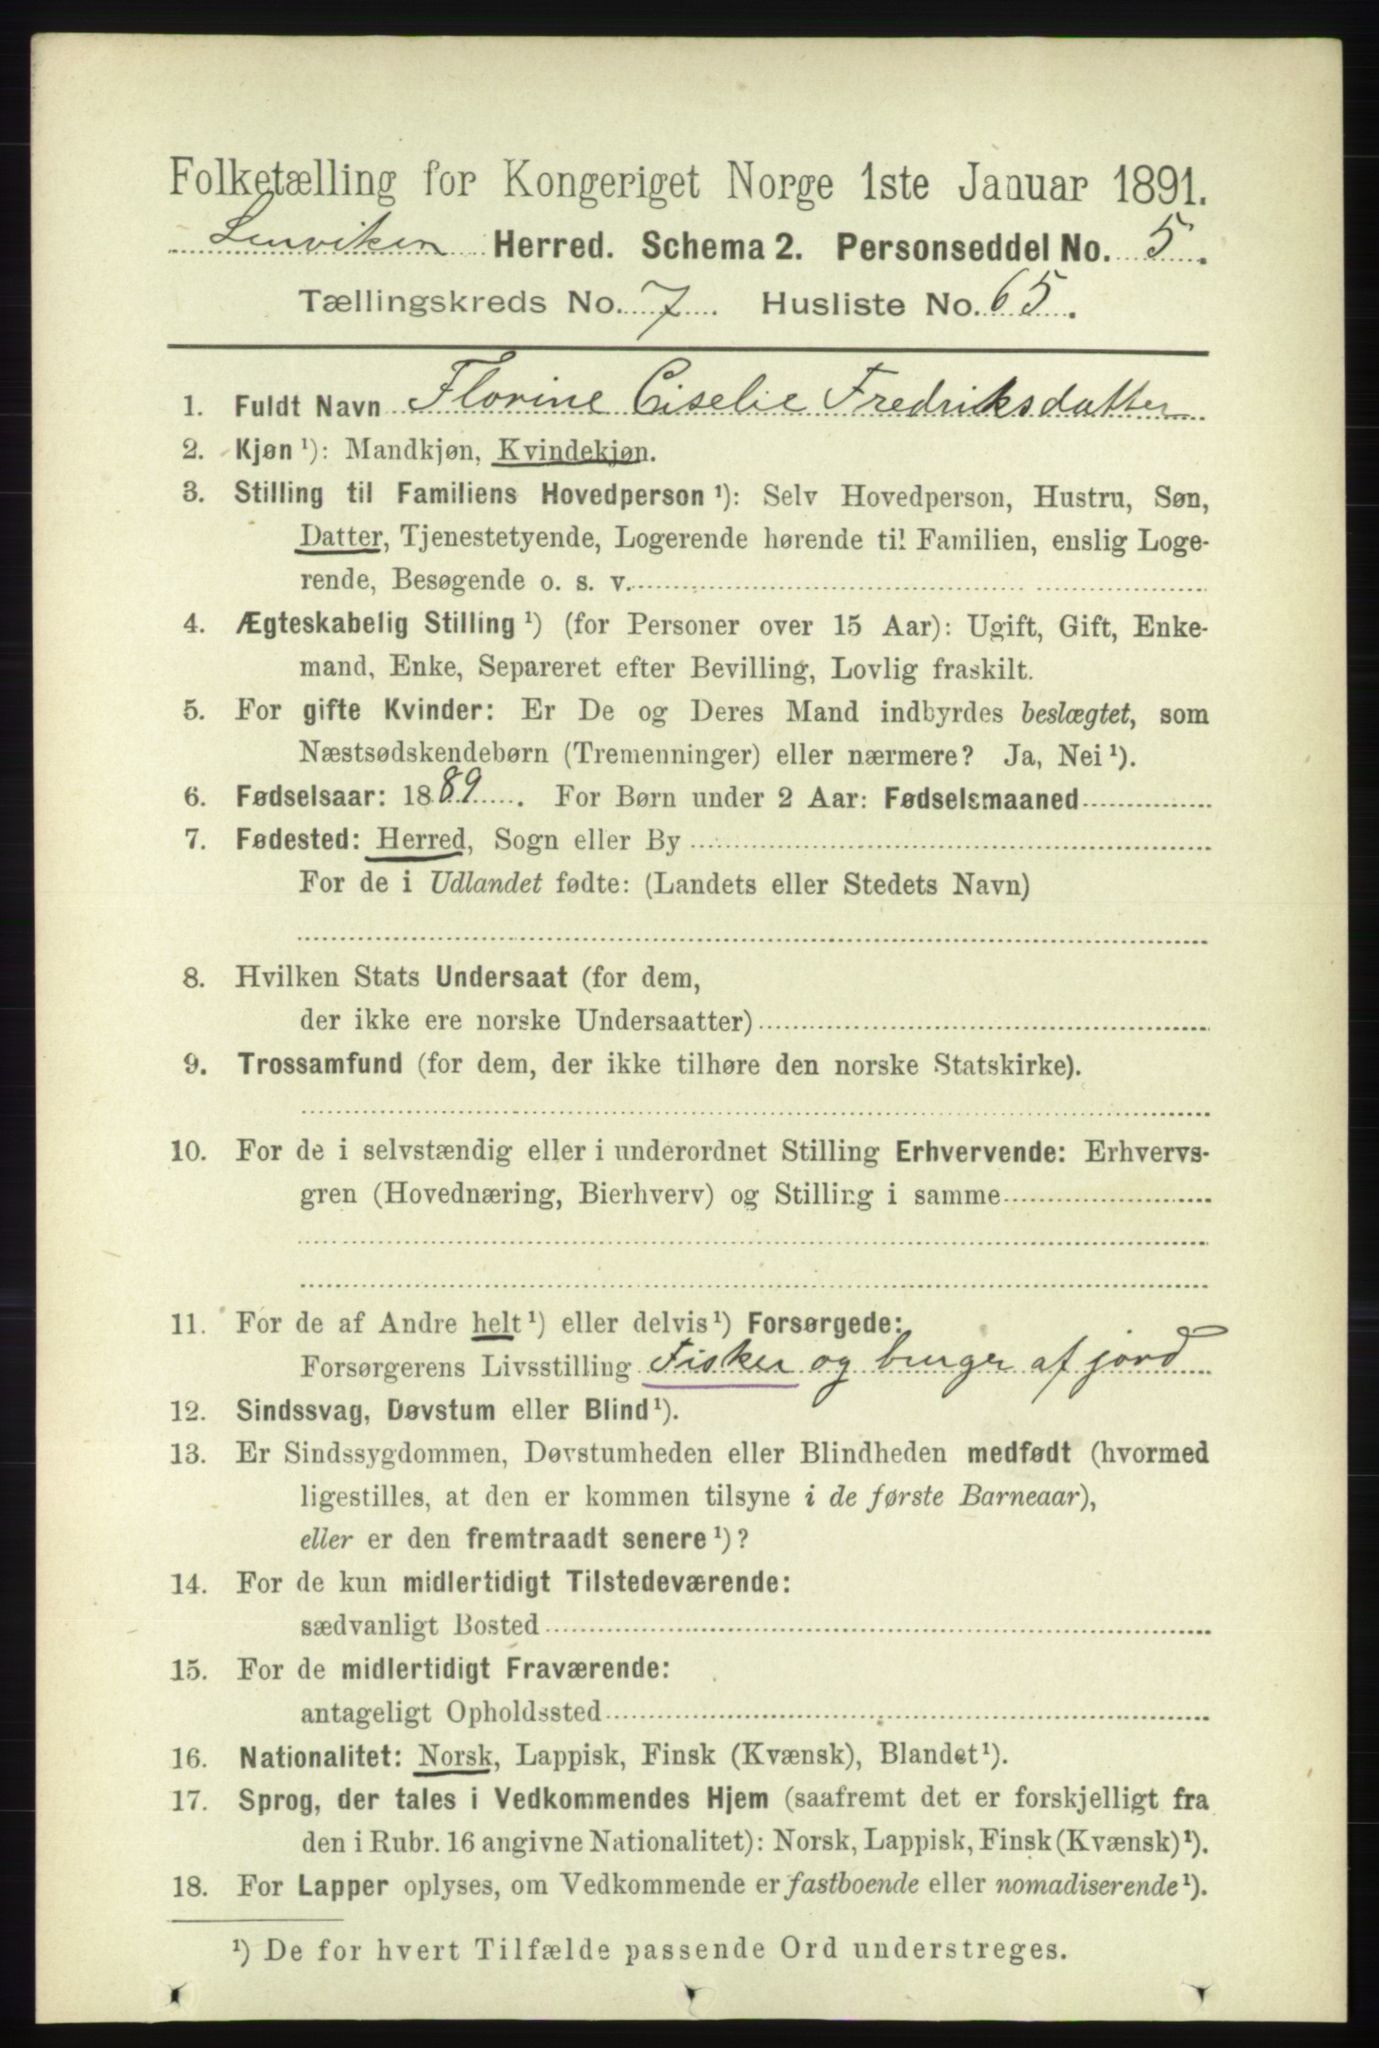 Folketælling for Kongeriget Norge 1ste Januar 1891.
Lenviken Herred. Schema 2. Personseddel No. 5.
Tællingskreds No. 7. Husliste No. 65.
1. Fuldt Navn Florine Ciselie Fredriksdatter
2. Kjøn ¹): Mandkjøn, Kvindekjøn.
3. Stilling til Familiens Hovedperson ¹): Selv Hovedperson, Hustru, Søn,
Datter, Tjenestetyende, Logerende hørende til Familien, enslig Loge-
rende, Besøgende o. s. v.
4. Ægteskabelig Stilling ¹) (for Personer over 15 Aar): Ugift, Gift, Enke-
mand, Enke, Separeret efter Bevilling, Lovlig fraskilt.
5. For gifte Kvinder: Er De og Deres Mand indbyrdes beslægtet, som
Næstsødskendebørn (Tremenninger) eller nærmere? Ja, Nei ¹).
6. Fødselsaar: 1889. For Børn under 2 Aar: Fødselsmaaned
7. Fødested: Herred, Sogn eller By
For de i Udlandet fødte: (Landets eller Stedets Navn)
8. Hvilken Stats Undersaat (for dem,
der ikke ere norske Undersaatter)
9. Trossamfund (for dem, der ikke tilhøre den norske Statskirke).
10. For de i selvstændig eller i underordnet Stilling Erhvervende: Erhvervs-
gren (Hovednæring, Bierhverv) og Stilling i samme
11. For de af Andre helt ¹) eller delvis ¹) Forsørgede:
Forsørgerens Livsstilling Fisker og bruger af jord
12. Sindssvag, Døvstum eller Blind ¹).
13. Er Sindssygdommen, Døvstumheden eller Blindheden medfødt (hvormed
ligestilles, at den er kommen tilsyne i de første Barneaar),
eller er den fremtraadt senere ¹)?
14. For de kun midlertidigt Tilstedeværende:
sædvanligt Bosted
15. For de midlertidigt Fraværende:
antageligt Opholdssted
16. Nationalitet: Norsk, Lappisk, Finsk (Kvænsk), Blandet ¹).
17. Sprog, der tales i Vedkommendes Hjem (saafremt det er forskjelligt fra
den i Rubr. 16 angivne Nationalitet): Norsk, Lappisk, Finsk (Kvænsk) ¹).
18. For Lapper oplyses, om Vedkommende er fastboende eller nomadiserende ¹).
¹) De for hvert Tilfælde passende Ord understreges.